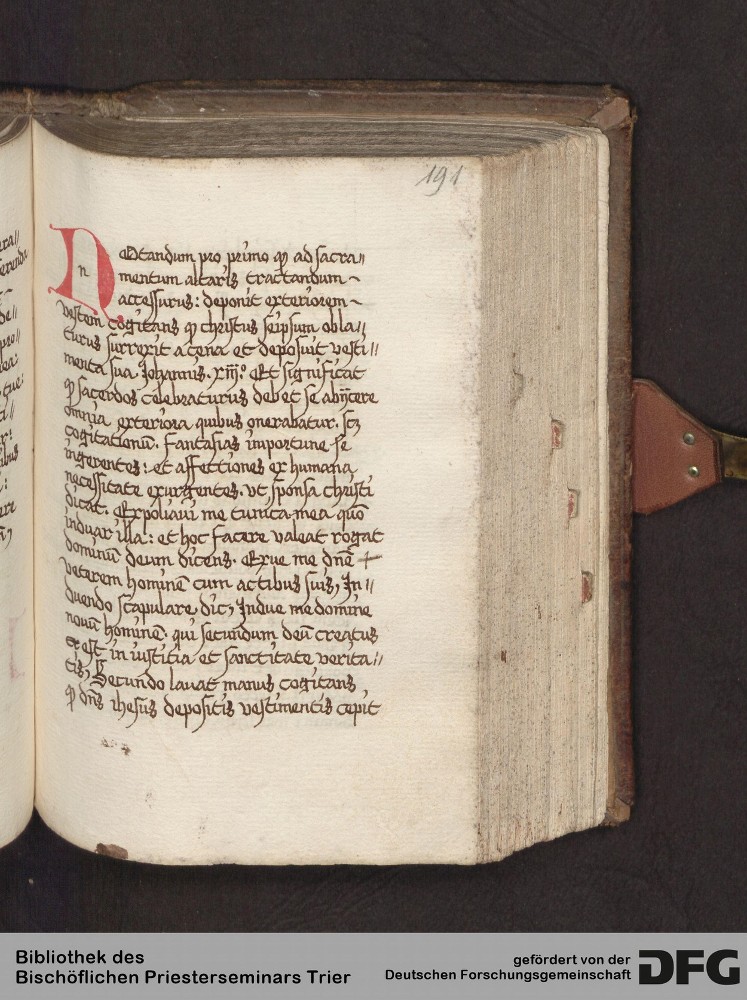 191
NOtandum pro primo ꝙ ad sacra//
mentum altaris tractandum~
accessurus: deponit exteriorem~
vestem cogitans ꝙ christus seipsum obla//
turus surrexit a cena et deposuit vesti//
menta sua. Johannis. xiij.º Et significat
ꝙ sacerdos celebraturus debet se abijcere
omnia exteriora quibus onerabatur. scꝫ
cogitationū. fantasias importune se
ingerentes: et affectiones ex humana
necessitate exurgentes. vt sponsa christi
dicat. Expoliaui me tunica mea quō
induar illa: et hoc facere valeat rogat
dominū deum dicens. Exue me dnē +
veterem hominē cum actibus suis, In//
duendo scapulare dic, Indue me domine
nouū hominē. qui secundum deū creatus
est in iustitia et sanctitate verita//
tis, Secundo lauat manus cogitans
ꝙ dn̄s ihesus depositis vestimentis cepit
Bibliothek des
Bischöflichen Priesterseminars Trier
gefördert von der
Deutschen Forschungsgemeinschaft
DFG